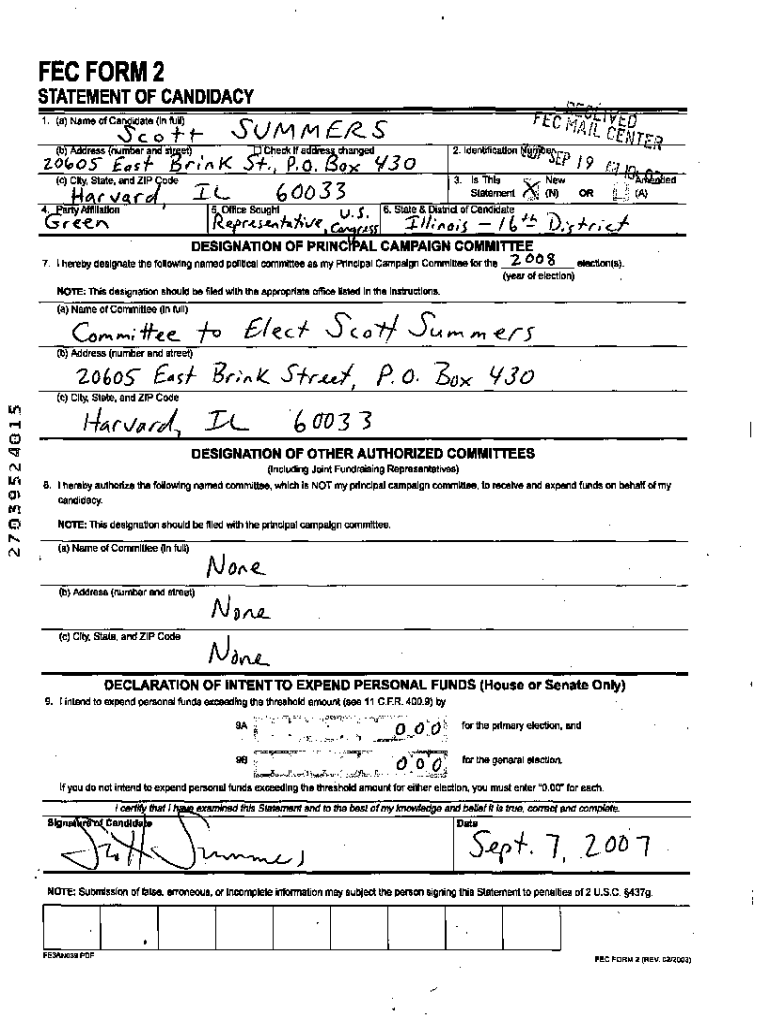 FEC FORM 2
STATEMENT OF CANDIDACY
1. (a) Name of Candidate (in full)
Scott SUMMERS
RECEIVED
FEC MAIL CENTER
(b) Address (number and street) Check if address changed
2. Identification Number
20605 East Brink St., P.O. Box 430
SEP 19
(c) City, State, and ZIP Code
Harvard, IL 60033
3. Is This Statement X New (N) OR Amended (A)
4. Party Affiliation
Green
5. Office Sought
Representative, U.S. Congress
6. State & District of Candidate
Illinois - 16th District
DESIGNATION OF PRINCIPAL CAMPAIGN COMMITTEE
7. I hereby designate the following named political committee as my Principal Campaign Committee for the 2008 election(s).
(year of election)
NOTE: This designation should be filed with the appropriate office listed in the instructions.
(a) Name of Committee (in full)
Committee to Elect Scott Summers
(b) Address (number and street)
20605 East Brink Street, P.O. Box 430
(c) City, State, and ZIP Code
Harvard, IL 60033
27039524015
DESIGNATION OF OTHER AUTHORIZED COMMITTEES
(Including Joint Fundraising Representatives)
8. I hereby authorize the following named committee, which is NOT my principal campaign committee, to receive and expend funds on behalf of my
candidacy.
NOTE: This designation should be filed with the principal campaign committee.
(a) Name of Committee (in full)
None
(b) Address (number and street)
None
(c) City, State, and ZIP Code
None
DECLARATION OF INTENT TO EXPEND PERSONAL FUNDS (House or Senate Only)
9. I intend to expend personal funds exceeding the threshold amount (see 11 C.F.R. 400.9) by
9A 0 0 0 for the primary election, and
9B 0 0 0 for the general election.
If you do not intend to expend personal funds exceeding the threshold amount for either election, you must enter "0.00" for each.
I certify that I have examined this Statement and to the best of my knowledge and belief it is true, correct and complete.
Signature of Candidate
Scott Summers
Date
Sept. 7, 2007
NOTE: Submission of false, erroneous, or incomplete information may subject the person signing this Statement to penalties of 2 U.S.C. §437g.
FE3AN039.PDF
FEC FORM 2 (REV. 02/2003)